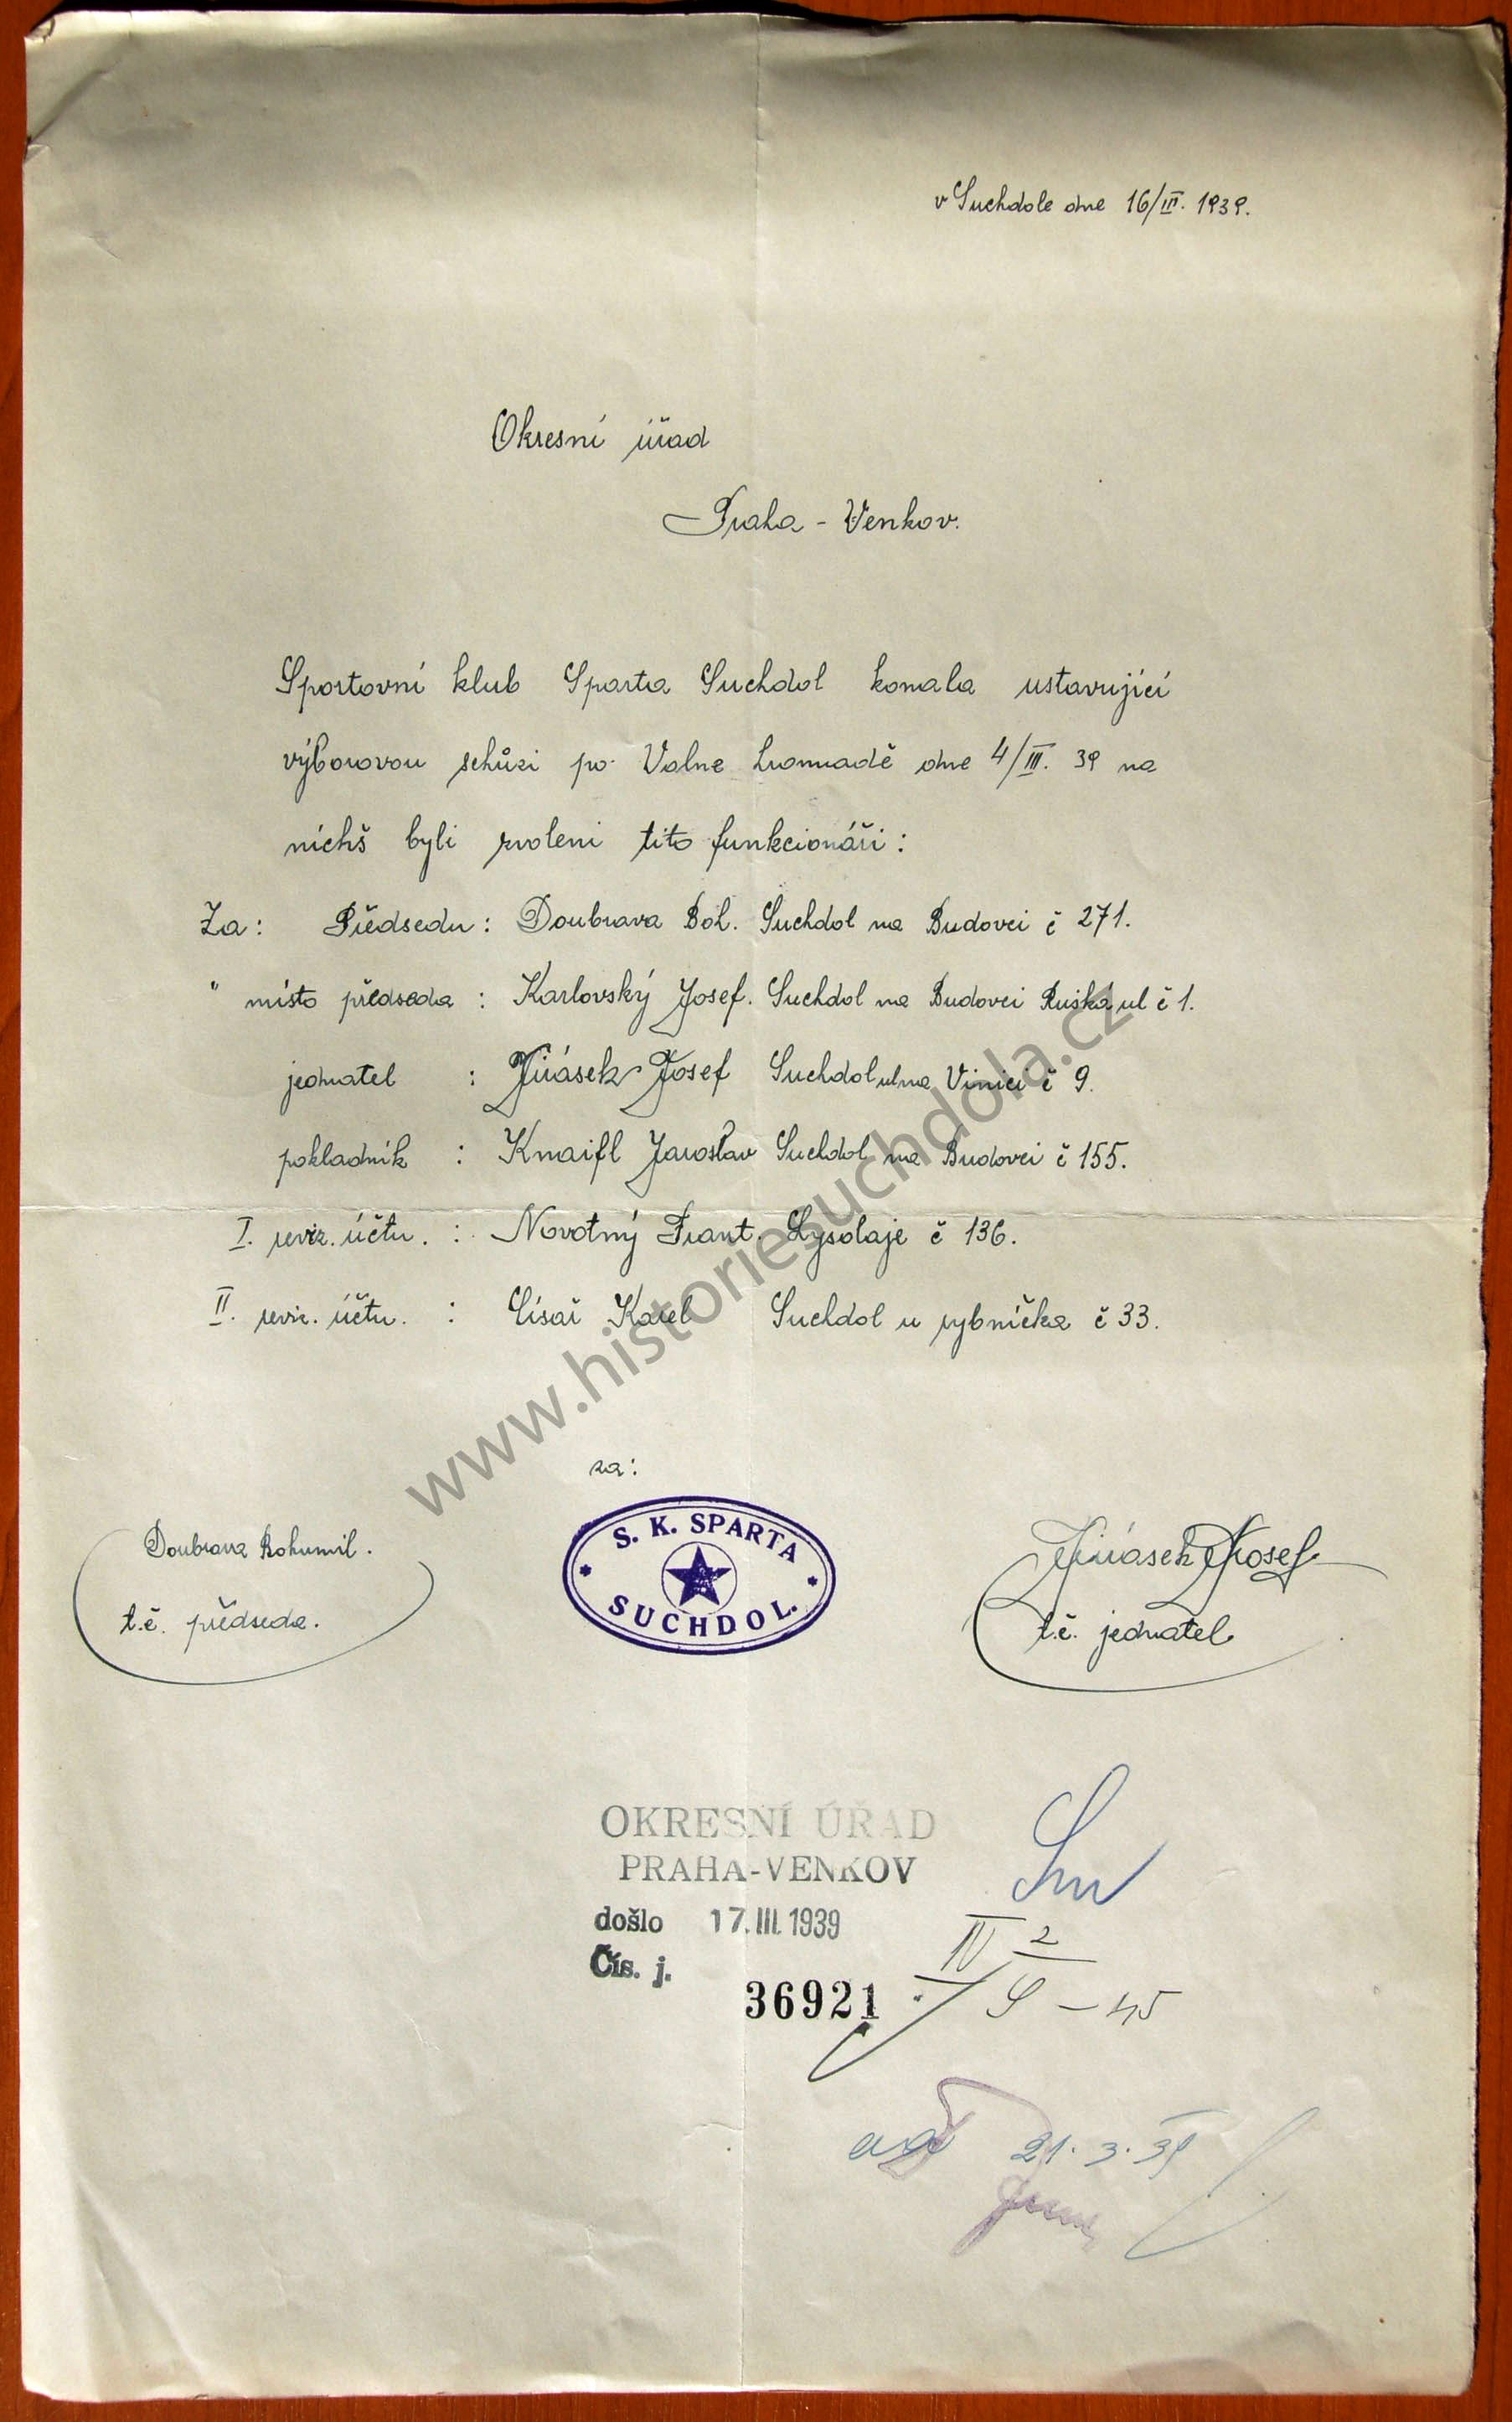 v Suchdole dne 16/III. 1939.
Okresní úřad
Praha - Venkov.
Sportovní klub Sparta Suchdol konala ustavující
výborovou schůzi po Valne hromadě dne 4/III. 39 na
níchš byli zvoleni tito funkcionáři:
Za: Předsedu: Doubrava Boh. Suchdol na Budovci č 271.
" místo předseda : Karlovský Josef. Suchdol na Budovci Ruská ul č 1.
jednatel : Jirásek Josef Suchdol ul na Vinici č 9.
pokladník : Knaifl Jaroslav Suchdol na Budovci č 155.
I. reviz. účtu. : Novotný Frant. Lysolaje č 136.
II. reviz. účtu. : Císař Karel Suchdol u rybníčka č 33.
za:
S. K. SPARTA
SUCHDOL.
Doubrava Bohumil.
t.č. předseda.
Jirásek Josef
t.č. jednatel
OKRESNÍ ÚŘAD
PRAHA-VENKOV
došlo 17. III. 1939
Čís. j.
36921
IV 2
9 - 45
ad 21. 3. 39
www.historiesuchdola.cz